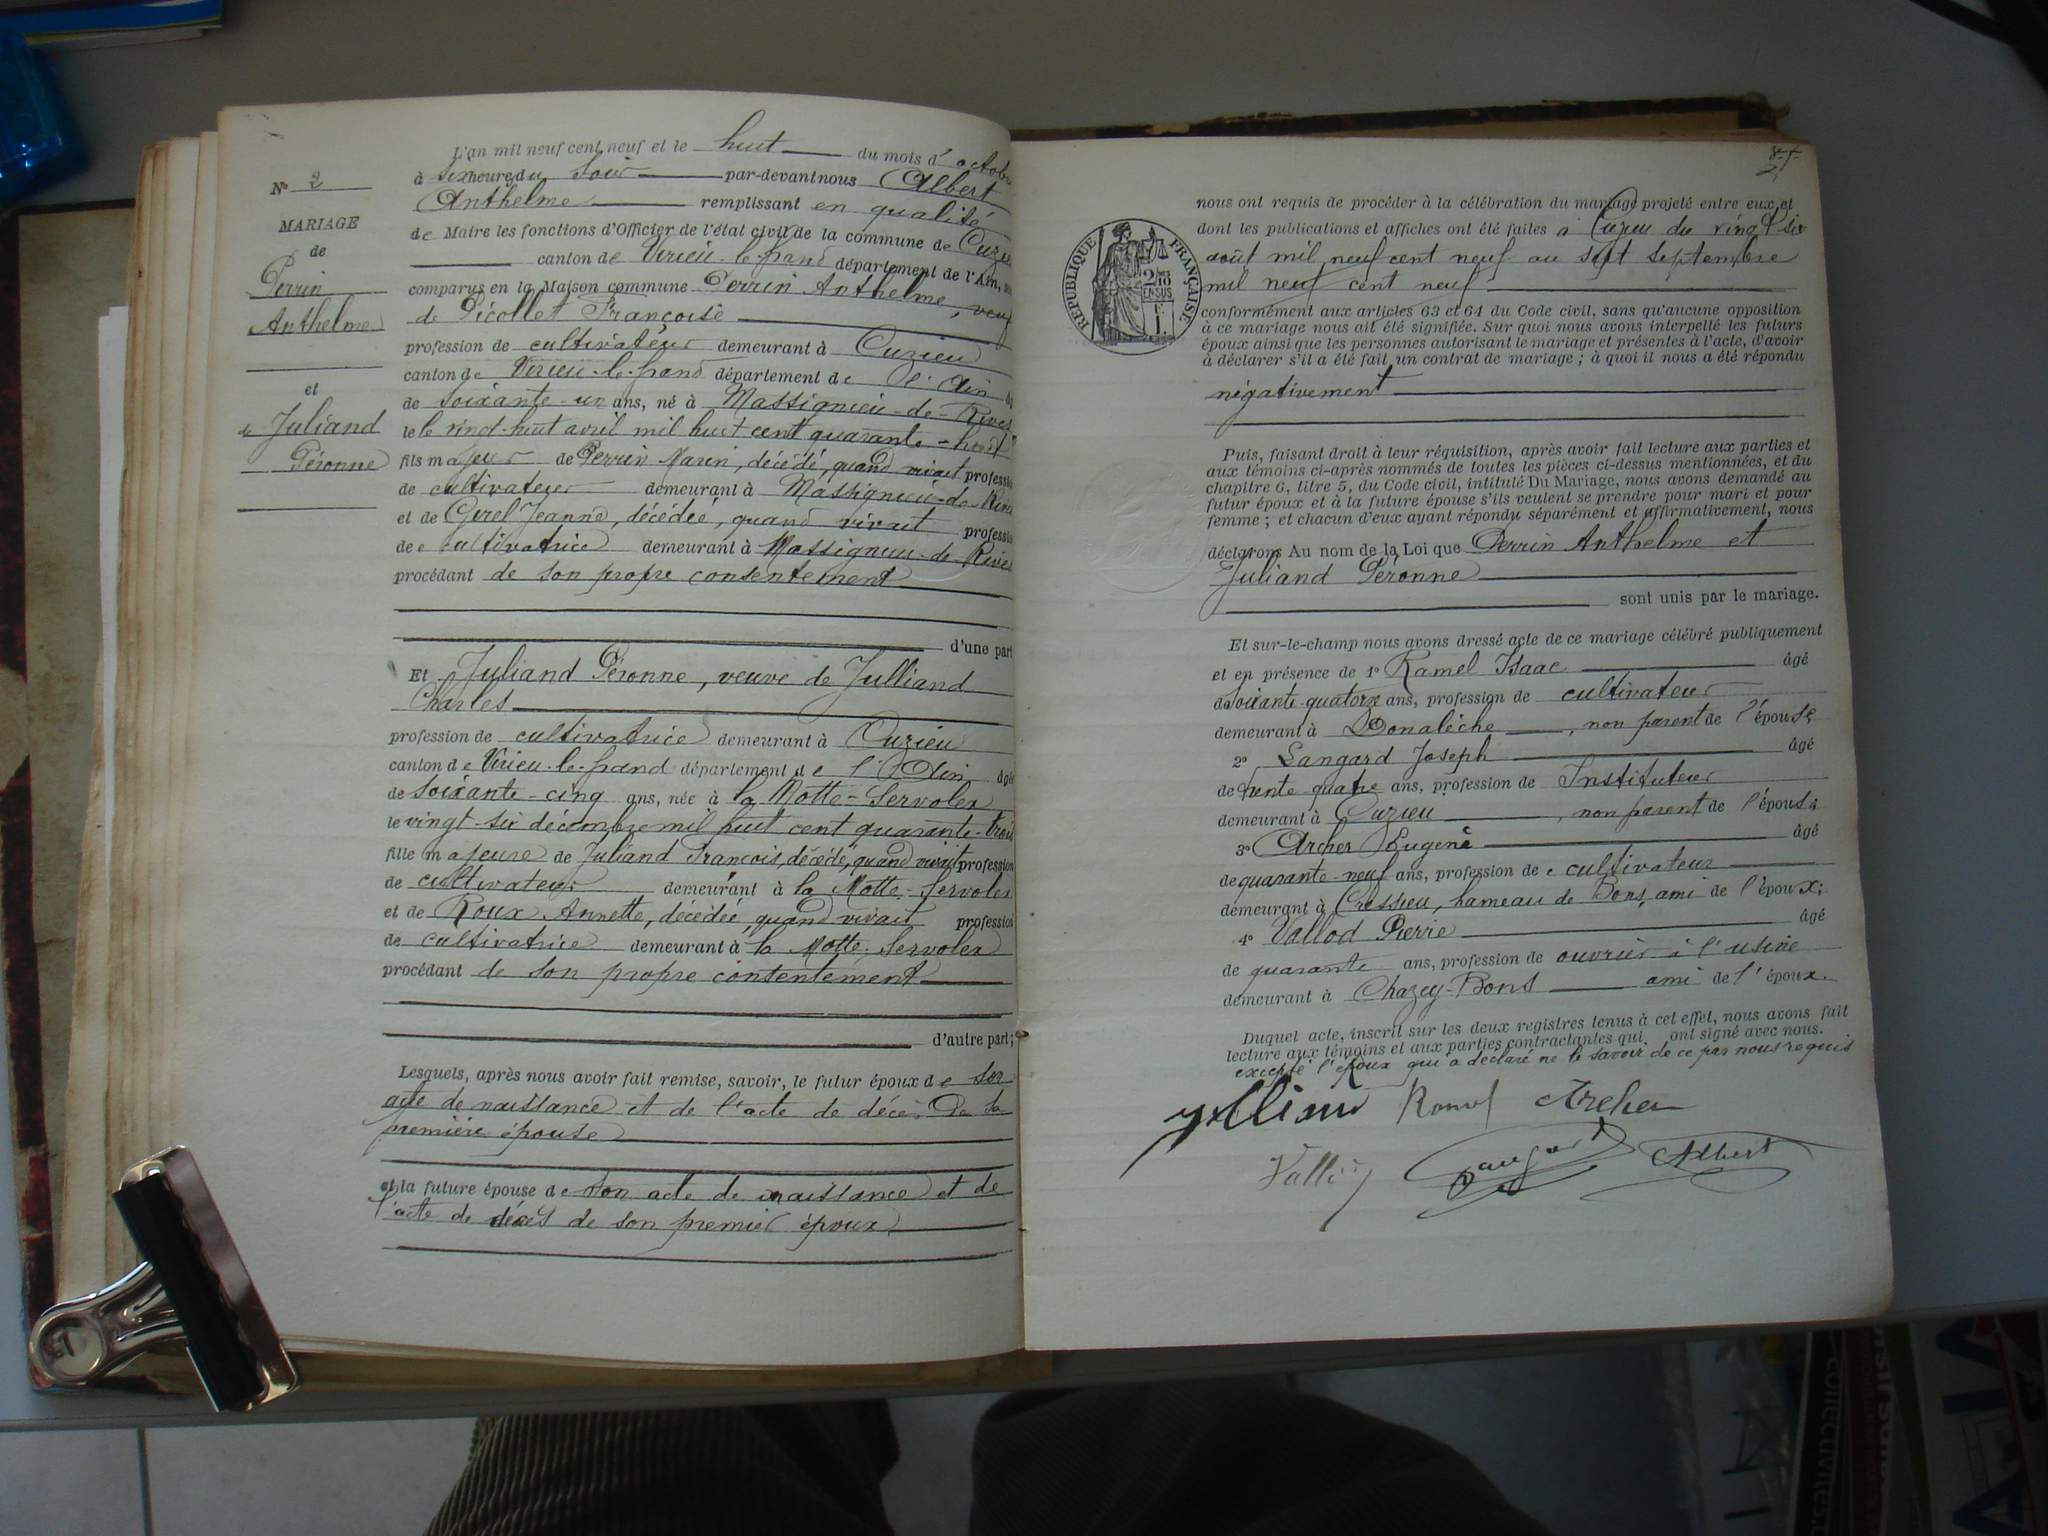 N° 2
MARIAGE
de
Perrin
Anthelme
et
de Juliand
Péronne
L'an mil neuf cent neuf et le huit du mois d'octobre
à six heures du soir par-devant nous Albert
Anthelme remplissant en qualité
de Maire les fonctions d'Officier de l'état civil de la commune de Cuzieu
canton de Virieu-le-grand département de l'Ain, ont
comparus en la Maison commune Perrin Anthelme, veuf
de Picollet Françoise
profession de cultivateur demeurant à Cuzieu
canton de Virieu-le-grand département de l'Ain âgé
de soixante-un ans, né à Massignieu-de-Rives
le le vingt-huit avril mil huit cent quarante-huit
fils majeur de Perrin Marin, décédé, quand vivait profession
de cultivateur demeurant à Massignieu-de-Rives
et de Girel Jeanne, décédée, quand vivait profession
de cultivatrice demeurant à Massignieu-de-Rives
procédant de son propre consentement
d'une part
Et Juliand Péronne, veuve de Julliand
Charles
profession de cultivatrice demeurant à Cuzieu
canton de Virieu-le-grand département de l'Ain âgée
de soixante-cinq ans, née à la Motte-Servolex
le vingt-six décembre mil huit cent quarante-trois
fille majeure de Juliand François, décédé, quand vivait profession
de cultivateur demeurant à la Motte-Servolex
et de Roux Annette, décédée, quand vivait profession
de cultivatrice demeurant à la Motte-Servolex
procédant de son propre consentement
d'autre part;
Lesquels, après nous avoir fait remise, savoir, le futur époux de son
acte de naissance et de l'acte de décès de sa
première épouse
et la future épouse de son acte de naissance et de
l'acte de décès de son premier époux
RÉPUBLIQUE FRANÇAISE
nous ont requis de procéder à la célébration du mariage projeté entre eux et
dont les publications et affiches ont été faites à Cuzieu du vingt six
août mil neuf cent neuf au sept septembre
mil neuf cent neuf
conformément aux articles 63 et 64 du Code civil, sans qu'aucune opposition
à ce mariage nous ait été signifiée. Sur quoi nous avons interpellé les futurs
époux ainsi que les personnes autorisant le mariage et présentes à l'acte, d'avoir
à déclarer s'il a été fait un contrat de mariage ; à quoi il nous a été répondu
négativement
Puis, faisant droit à leur réquisition, après avoir fait lecture aux parties et
aux témoins ci-après nommés de toutes les pièces ci-dessus mentionnées, et du
chapitre 6, titre 5, du Code civil, intitulé Du Mariage, nous avons demandé au
futur époux et à la future épouse s'ils veulent se prendre pour mari et pour
femme ; et chacun d'eux ayant répondu séparément et affirmativement, nous
déclarons Au nom de la Loi que Perrin Anthelme et
Juliand Péronne
sont unis par le mariage.
Et sur-le-champ nous avons dressé acte de ce mariage célébré publiquement
et en présence de 1° Ramel Isaac âgé
de soixante quatorze ans, profession de cultivateur
demeurant à Donalèche, non parent de l'épouse
2° Langard Joseph âgé
de trente-quatre ans, profession de Instituteur
demeurant à Cuzieu, non parent de l'épouse
3° Archer Eugène âgé
de quarante-neuf ans, profession de cultivateur
demeurant à Cressieu, hameau de Bons, ami de l'époux;
4° Vallod Pierre âgé
de quarante ans, profession de ouvrier à l'usine
demeurant à Chazey-Bons ami de l'époux.
Duquel acte, inscrit sur les deux registres tenus à cet effet, nous avons fait
lecture aux témoins et aux parties contractantes qui ont signé avec nous.
excepté l'époux qui a déclaré ne le savoir de ce par nous requis
Ramel Archer
Langard Albert